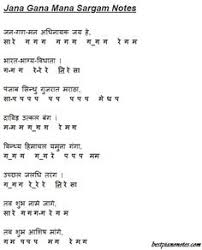 Jana Gana Mana Sargam Notes
जन-गण-मन अधिनायक जय हे,
सारे ग ग ग ग ग ग ग ग रे ग म
भारत-भाग्य-विधाता ।
ग-ग ग रे-रे रे नि रे सा
पंजाब सिन्धु गुजरात मराठा,
सा-प प प प प प प प म प
द्राविड़ उत्कल बंग ।
म-म म ग ग ग रे म ग
विन्ध्य हिमाचल यमुना गंगा,
ग ग ग ग ग रे प प प म म
उच्छल जलधि तरंग ।
ग ग ग रे रे रे नि रे सा
तव शुभ नामे जागे,
सारे ग ग ग ग-ग रे ग म
तव शुभ आशिष मांगे,
ग म प प प म ग रे म ग
bestpianonotes.com